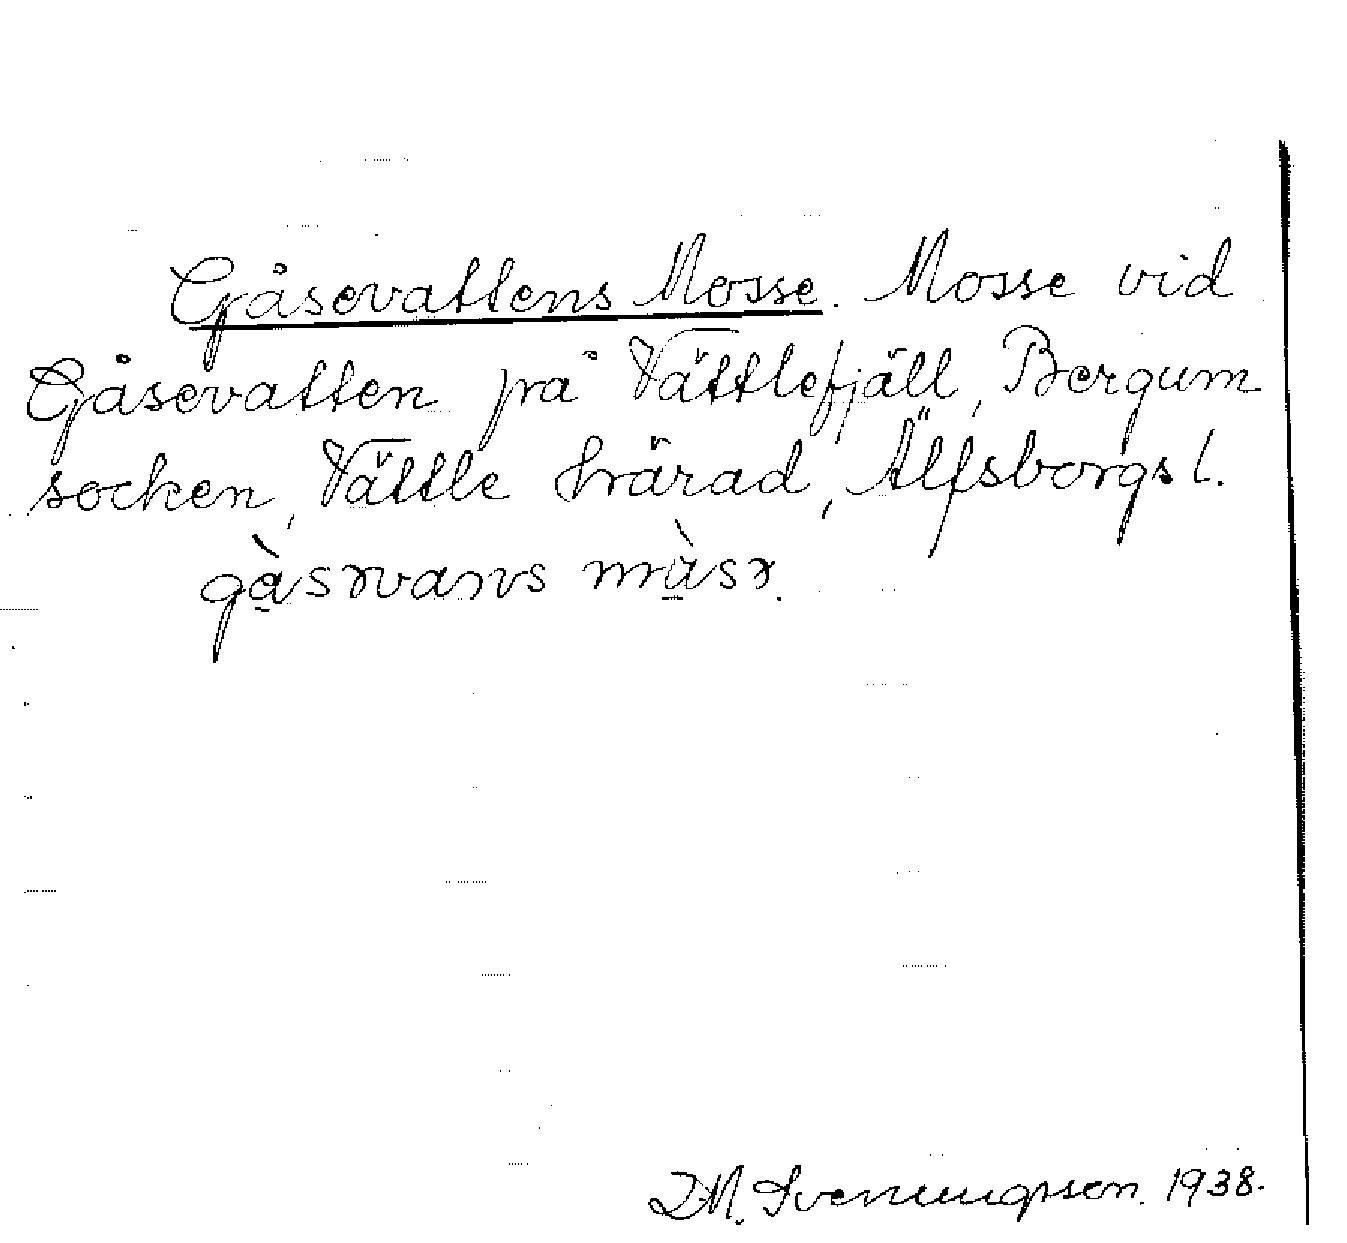 Gåsevattens Mosse. Mosse vid
Gåsevatten på Vättlefjäll, Bergum
socken, Vättle härad, Älfsborgs l.
D.M. Svenungsson. 1938.